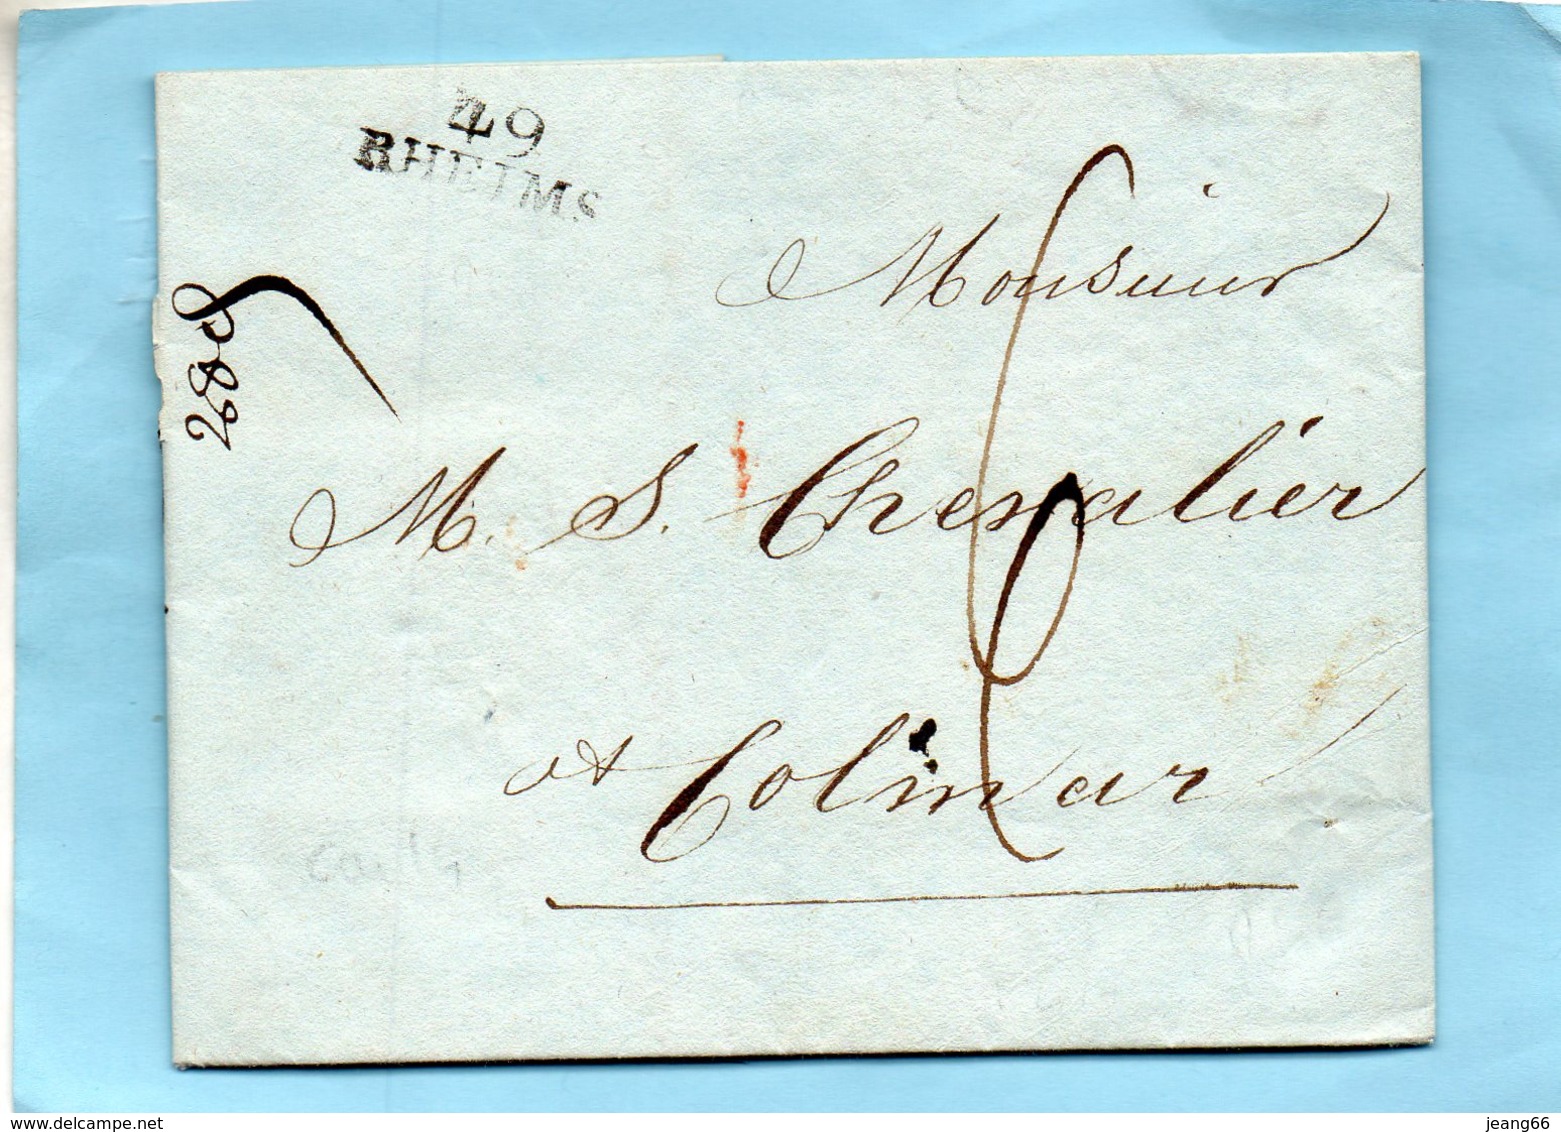 49
RHEIMS
Monsieur
M. S. Chevalier
at Colmar
6
www.delcampe.net
jeang66